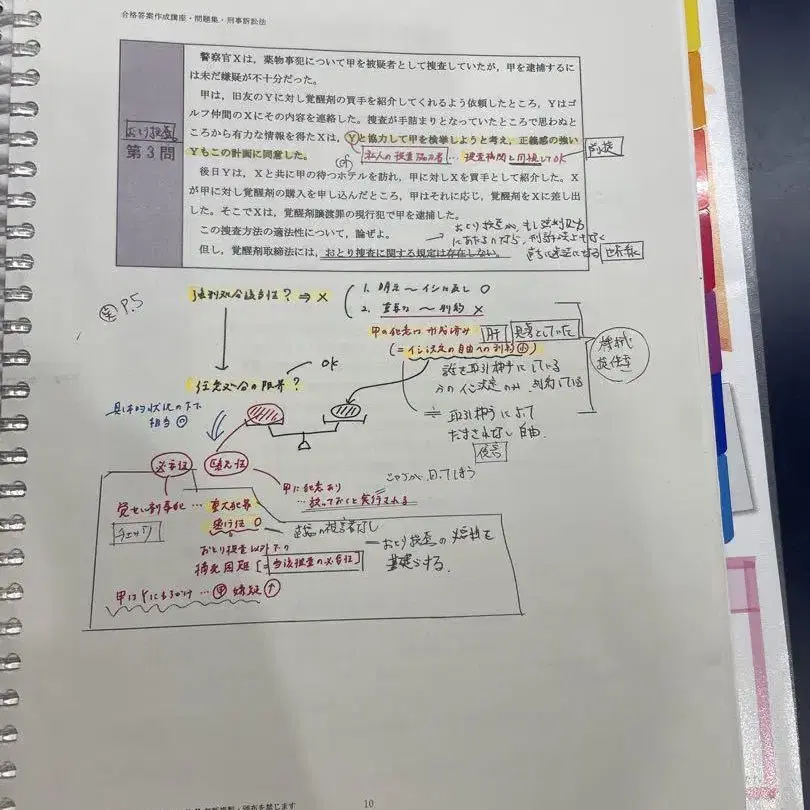 合格答案作成講座・問題集・刑事訴訟法
おとり捜査
第3問
警察官Xは，薬物事犯について甲を被疑者として捜査していたが，甲を逮捕するに
は未だ嫌疑が不十分だった。
甲は，旧友のYに対し覚醒剤の買手を紹介してくれるよう依頼したところ，Yはゴ
ルフ仲間のXにその内容を連絡した。捜査が手詰まりとなっていたところで思わぬと
ころから有力な情報を得たXは，Yと協力して甲を検挙しようと考え，正義感の強い
Yもこの計画に同意した。
私人の捜査協力者 … 捜査機関と同視してOK
後日Yは，Xと共に甲の待つホテルを訪れ，甲に対しXを買手として紹介した。X
が甲に対し覚醒剤の購入を申し込んだところ，甲はそれに応じ，覚醒剤をXに差し出
した。そこでXは，覚醒剤譲渡罪の現行犯で甲を逮捕した。
この捜査方法の適法性について，論ぜよ。
但し，覚醒剤取締法には，おとり捜査に関する規定は存在しない。
P.5
強制処分該当性？ ⇒ ×
1. 明示～イシに反し ○
2. 重要な～制約 ×
甲の犯意は形成済み
肝
(=イシ決定の自由への制約 小)
誰を取引相手にしている
OK
任意処分の限界？
取引相手によって
だまされない自由.
具体的状況の下で
相当
必要性
緊急性
甲に犯意あり
…放っておくと実行される
覚せい剤事犯 … 重大犯罪
密行性 ○
直接の被害者なし
おとり捜査以外での
摘発困難 [=当該捜査の必要性]
おとり捜査の必要性を
基礎づける.
甲はYにもちかけ … 甲 嫌疑 ↑
頒布を禁じます
10